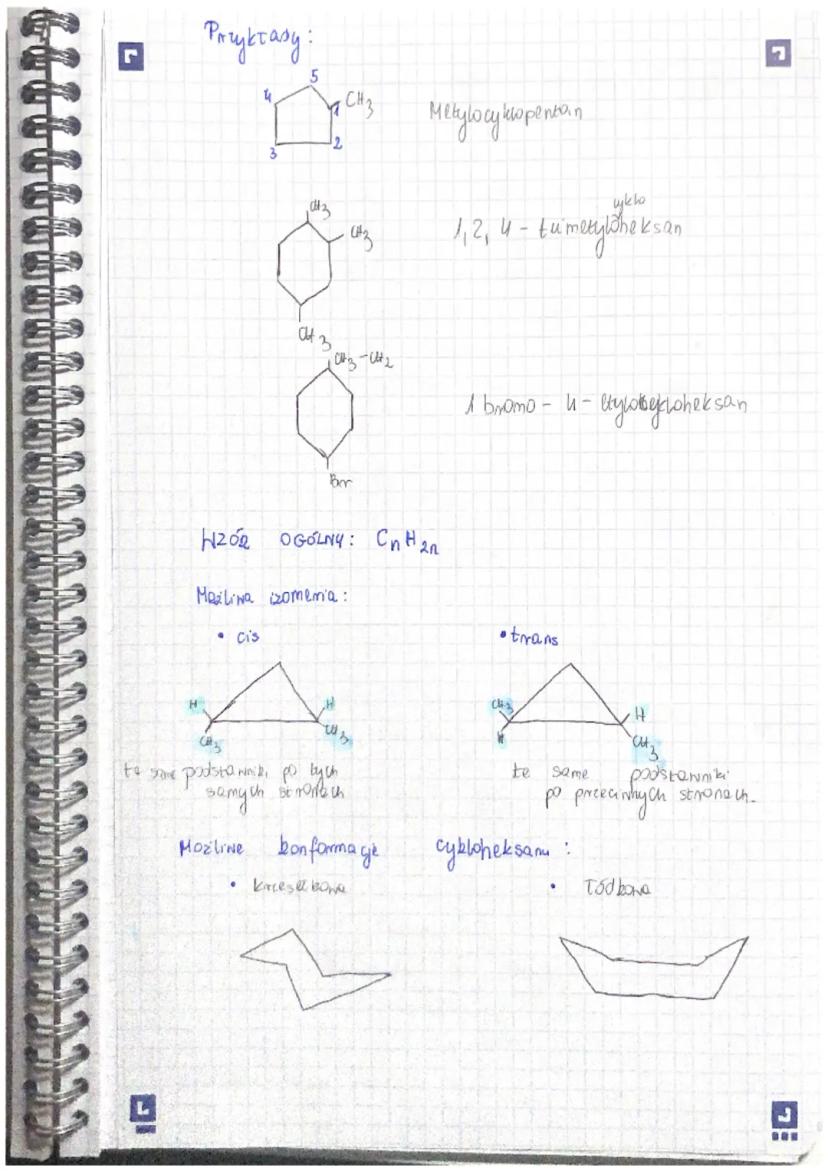 Przykłady:
5
4
1 CH3
3
2
Metylocyklopentan
CH3
CH3
cyklo
1, 2, 4 - trimetyloheksan
CH3
CH3-CH2
1 bromo - 4 - etylocykloheksan
Br
WZÓR OGÓLNY: CnH2n
Możliwa izomeria:
• cis
• trans
H
H
CH3
CH3
CH3
H
H
CH3
te same podstawniki po tych
samych stronach
te same podstawniki
po przeciwnych stronach.
Możliwe konformacje cykloheksanu:
• krzesełkowa
• łódkowa